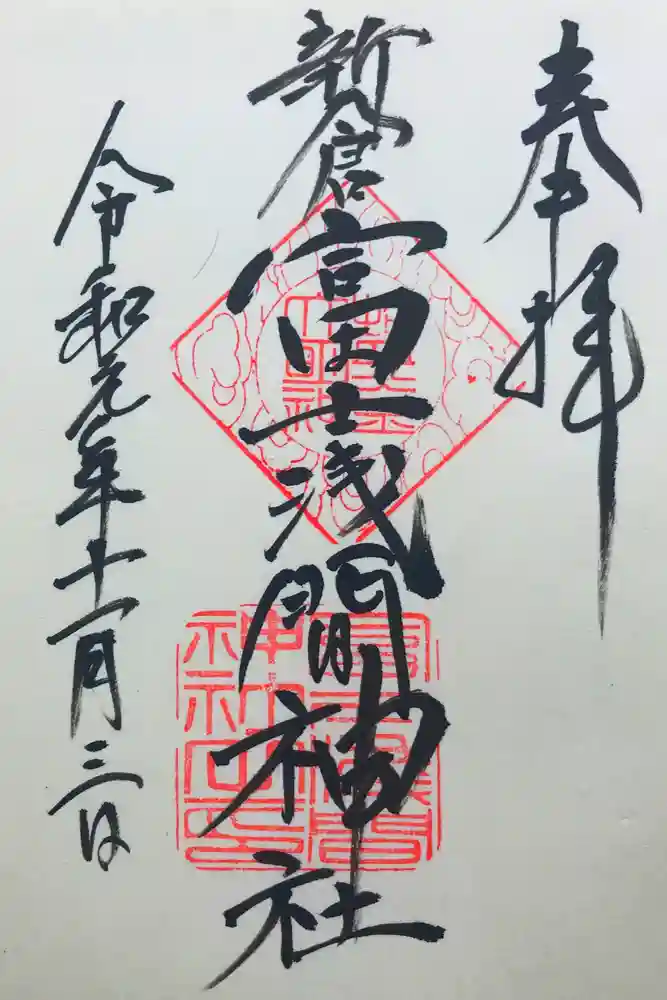 奉拝
新倉富士浅間神社
令和元年十一月三日